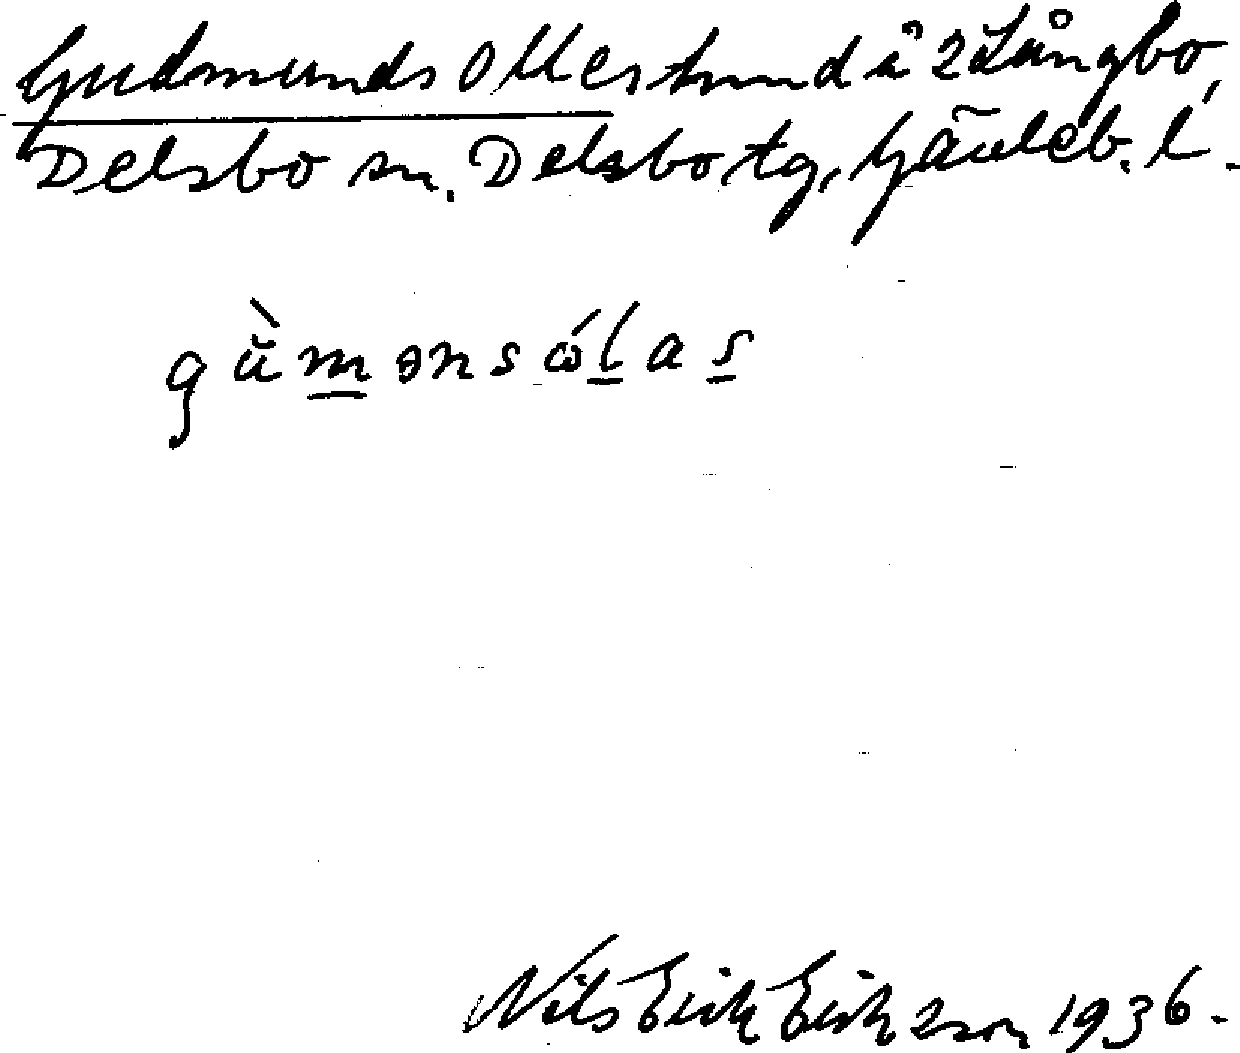 Gudmunds Olles hmd å 2 Långbo,
Delsbo sn. Delsbo tg, Gävleb. l.
gù̆m̲ənsól̲as̲
Nils Erik Eriksson 1936.